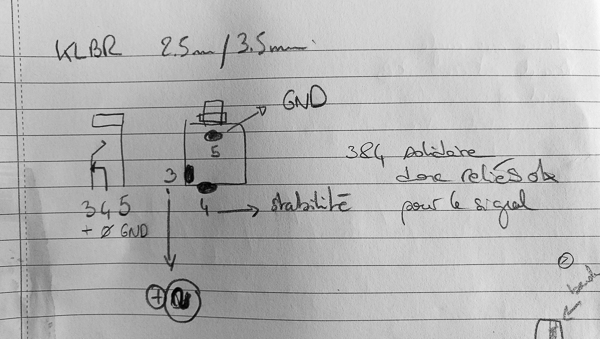 KLBR 2.5mm/3.5mm
GND
5
3
384 solidaire
donc reliés ok
pour le signal
4 → stabilité
3 4 5
+ Ø GND
+
2